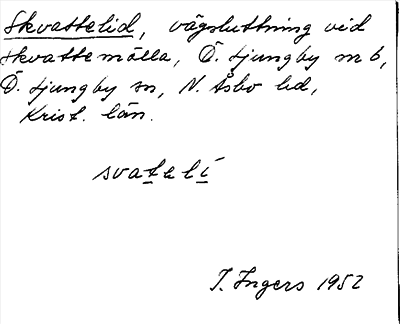 Skvattelid, vägsluttning vid
Skvattemölla, Ö. Ljungby m b,
Ö. Ljungby sn, N. Åsbo hd,
Krist. län.
svateli
I. Ingers 1952